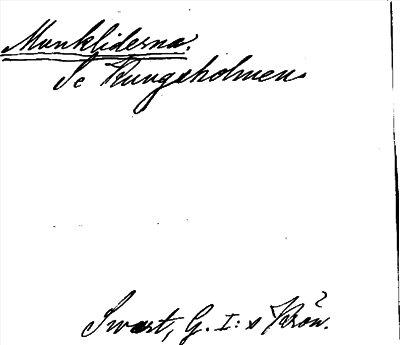 Munkliderna.
Se Kungsholmen.
Swart, G. I: s Krön.